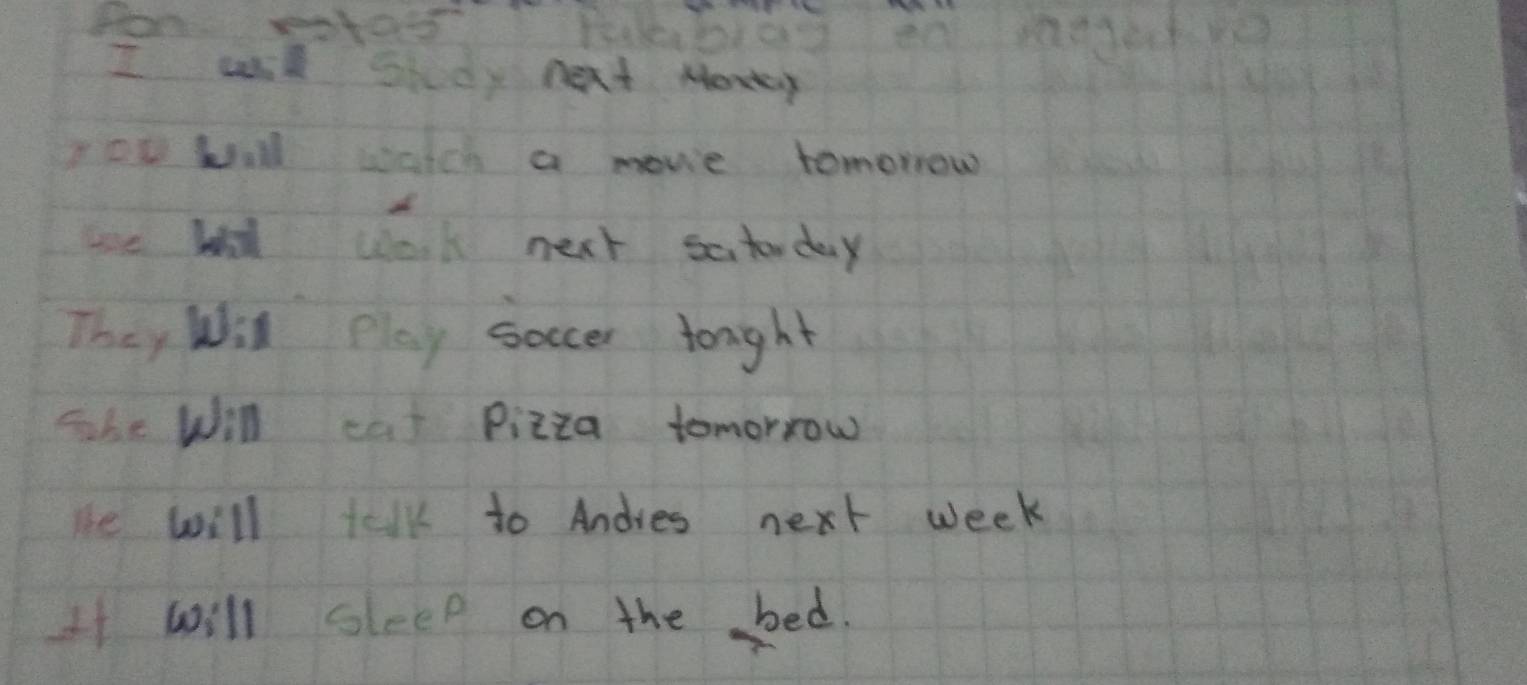 Pon estas palabras en negativo
I will Study next Monday
you will watch a movie tomorrow
we will work next saturday
They Will Play soccer tonght
She Will eat Pizza tomorrow
He will talk to Andres next week
It will sleep on the bed.